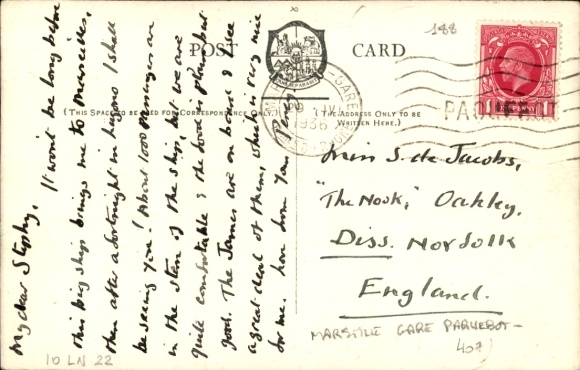 POST CARD
188
(THIS SPACE TO BE USED FOR CORRESPONDENCE ONLY.)
(THE ADDRESS ONLY TO BE
WRITTEN HERE.)
GARE
1936
PAQUEBOT
My dear Stephy,
It won't be long before
this big ship brings me to Marseilles,
then after a fortnight in I shall
be seeing you! About 1000 passengers are
in the stern of the ship, but we are
quite comfortable & the food is plain but
good. The James are on board & I see
a great deal of them, which is very nice
for me. Love from your Penny
Miss S. de Jacobs,
"The Nook", Oakley,
Diss. Norfolk
England.
MARSEILLE GARE PAQUEBOT -
407
10 LN 22